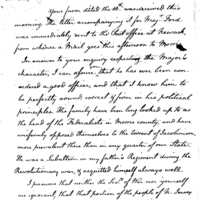 Your favor dated the 10th was received this
morning. The letter accompanying it for Maj. Ford
was immediately sent to the Post office at Newark,
from whence a Mail goes this afternoon to Morris
In answer to your enquiry respecting the Major's
character, I can assure, that he has ever been con-
sidered a good officer, and that I know him to
be perfectly sound & correct in his political
principles. The family have been long looked up to as
the head of the Federalists in Morris county, and have
uniformly opposed themselves to the torrent of Jacobinism
more prevalent there than in any part of our State.
He was a Subaltern in my father's Regiment during the
Revolutionary war, & acquitted himself always well.
I presume that neither the Sec. of War nor yourself
are ignorant, that that portion of the people of N. Jersey